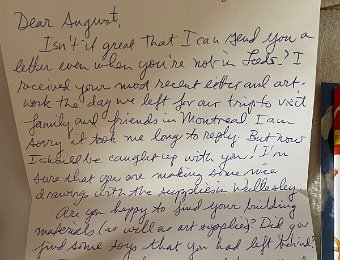 Dear August,
Isn't it great that I can send you a
letter even when you're not in Leeds? I
received your most recent letter and art-
work the day we left for our trip to visit
family and friends in Montreal. I am
sorry it took me long to reply. But now
I should be caught up with you! I'm
sure that you are making some nice
drawing with the supplies in Wellesley.
Are you happy to find your building
materials (as well as art supplies)? Did you
find some toys that you had left behind?